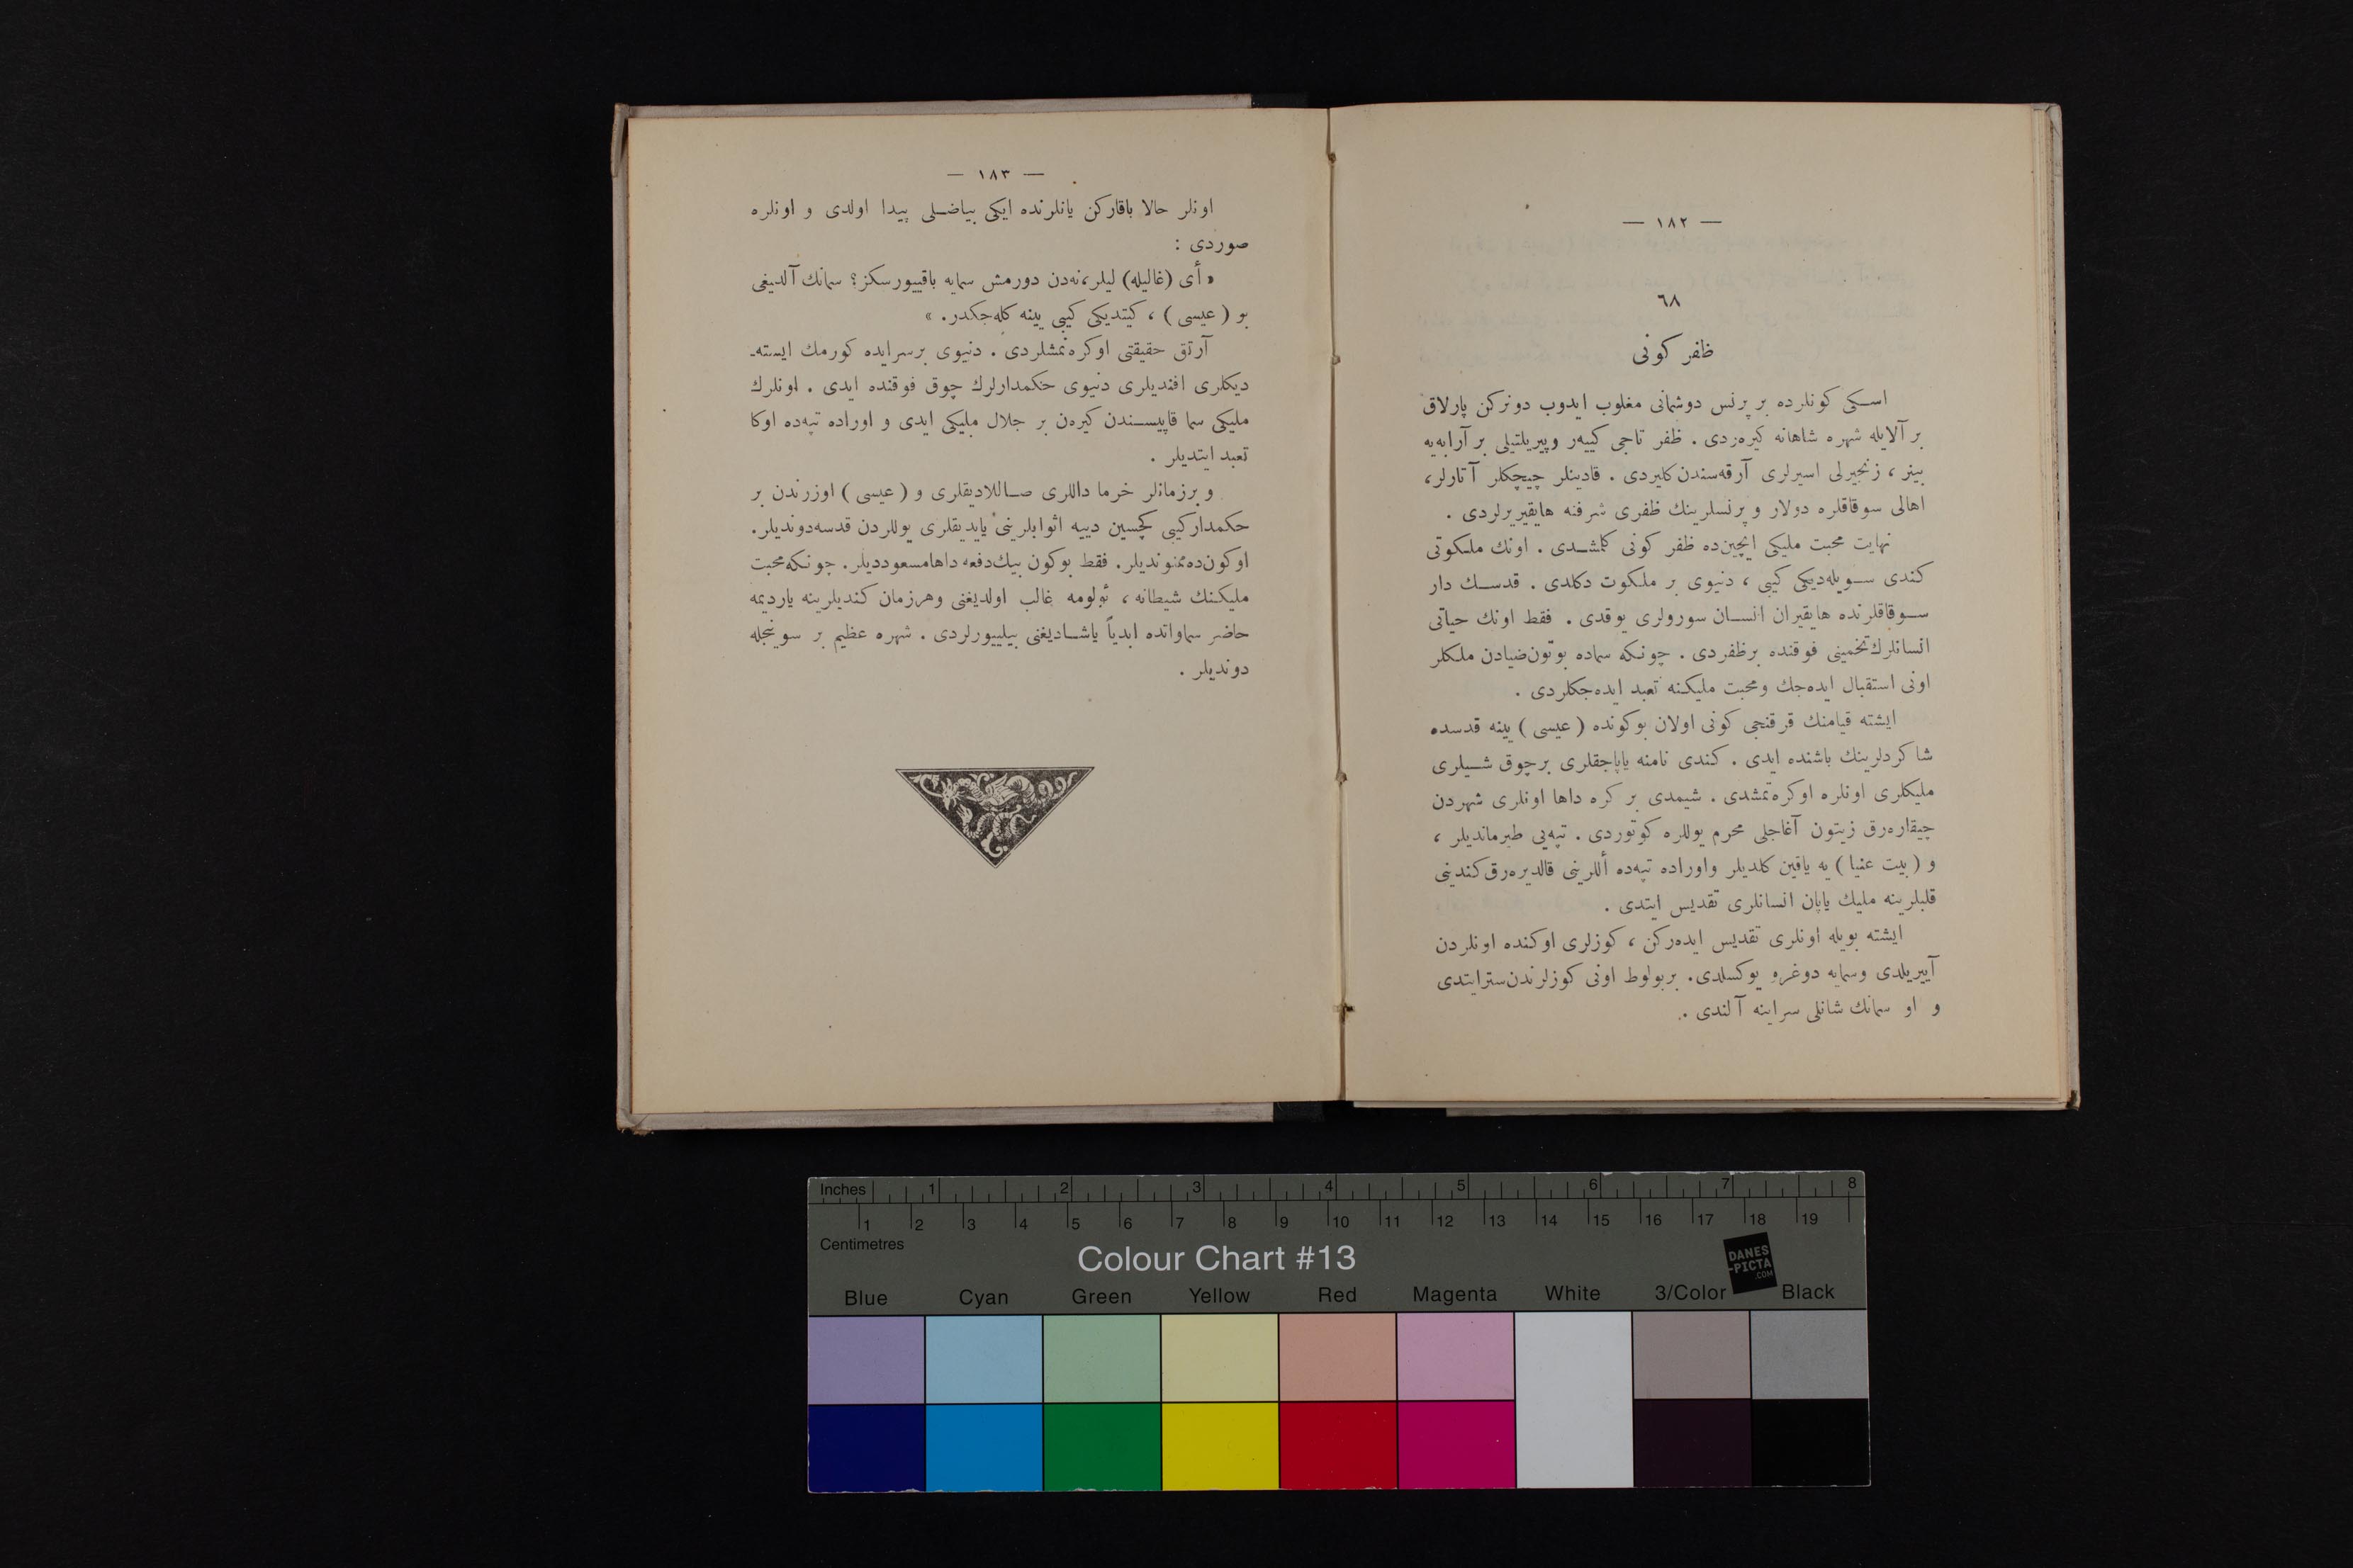 — ١٨٢ —
٦٨
ظفر كونى
اسكى كونلرده بر پرنس دوشمانى مغلوب ايدوب دونركن پارلاق
بر آلايله شهره شاهانه كيره‌ردى . ظفر تاجى كييه‌ر وپيريلتيلى بر آرابه‌يه
بينر ، زنجيرلى اسيرلرى آرقه‌سندن كليردى . قادينلر چيچكلر آتارلر،
اهالى سوقاقلره دولار و پرنسلرينك ظفرى شرفنه هايقيريرلردى .
نهايت محبت مليكى ايچين‌ده ظفر كونى كلمشدى . اونك ملكوتى
كندى سويله‌ديكى كيبى ، دنيوى بر ملكوت دكلدى . قدسك دار
سوقاقلرنده هايقيران انسان سورولرى يوقدى . فقط اونك حياتى
انسانلرك تخمينى فوقنده برظفردى . چونكه سماده بوتون ضيادن ملكلر
اونى استقبال ايده‌جك ومحبت مليكنه تعبد ايده‌جكلردى .
ايشته قيامنك قرقنجى كونى اولان بوكونده ( عيسى ) يينه قدسده
شاكردلرينك باشنده ايدى . كندى نامنه ياپاجقلرى برچوق شيلرى
مليكلرى اونلره اوكره‌تمشدى . شيمدى بر كره داها اونلرى شهردن
چيقاره‌رق زيتون آغاجلى محرم يوللره كوتوردى . تپه‌يى طيرمانديلر ،
و ( بيت عنيا ) يه ياقين كلديلر واوراده تپه‌ده أللرينى قالديره‌رق كندينى
قلبلرينه مليك ياپان انسانلرى تقديس ايتدى .
ايشته بويله اونلرى تقديس ايده‌ركن ، كوزلرى اوكنده اونلردن
آييريلدى وسمايه دوغره يوكسلدى. بربولوط اونى كوزلرندن ستر ايتدى
و او سمانك شانلى سراينه آلندى .
— ١٨٣ —
اونلر حالا باقاركن يانلرنده ايكى بياضلى پيدا اولدى و اونلره
صوردى :
« أى (غاليله) ليلر، نه‌دن دورمش سمايه باقييورسكز؟ سمانك آلديغى
بو ( عيسى ) ، كيتديكى كيبى يينه كله‌جكدر. »
آرتق حقيقتى اوكره‌نمشلردى . دنيوى برسرايده كورمك ايسته‌ـ
ديكلرى افنديلرى دنيوى حكمدارلرك چوق فوقنده ايدى . اونلرك
مليكى سما قاپيسندن كيره‌ن بر جلال مليكى ايدى و اوراده تپه‌ده اوكا
تعبد ايتديلر .
و برزمانلر خرما داللرى صاللاديقلرى و ( عيسى ) اوزرندن بر
حكمدار كيبى كچسين دييه اثوابلرينى يايديقلرى يوللردن قدسه دونديلر.
اوكون‌ده ممنونديلر. فقط بوكون بيك دفعه داها مسعودديلر. چونكه محبت
مليكنك شيطانه ، ئولومه غالب اولديغنى وهرزمان كنديلرينه يارديمه
حاضر سماوانده ابدياً ياشاديغنى بيلييورلردى . شهره عظيم بر سوينجله
دونديلر .
Inches 1 2 3 4 5 6 7 8
1 2 3 4 5 6 7 8 9 10 11 12 13 14 15 16 17 18 19
Centimetres
Colour Chart #13
DANES
-PICTA
.COM
Blue Cyan Green Yellow Red Magenta White 3/Color Black